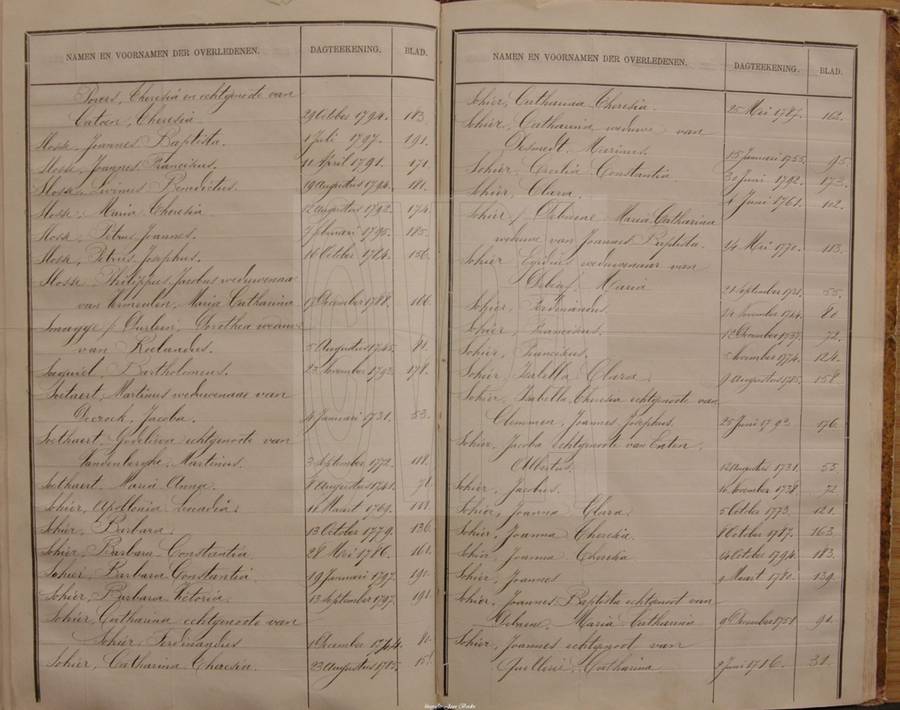 NAMEN EN VOORNAMEN DER OVERLEDENEN. DAGTEEKENING. BLAD.
Theresia en echtgenote van
Theresia 29 October 1794. 183.
Joannes Baptista. 1 Juli 1797. 191.
Joannes Franciskus. 11 April 1791. 171.
Livinus Benedictus. 19 Augustus 1794. 181.
Maria Theresia 12 Augustus 1792. 174.
Petrus Joannes. 1795. 185.
Petrus Josephus. 16 October 1784. 156.
Philippus Jacobus weduwenaar
van Vermeulen, Maria Catharina 17 December 1788. 166.
Dorothea weduwe
van Roelandus. 5 Augustus 1745. 81.
Bartholomeus. 23 November 1793. 178.
Martinus weduwenaar van
Jacoba. 4 Januari 1731. 53.
Godeliva echtgenote van
Vandenberghe, Martinus. 3 September 1772. 118.
Maria Anna. 8 Augustus 1741. 78.
Sohier, Apollonia Leocadia. 11 Maart 1769.
Sohier, Barbara. 13 October 1779. 136.
Sohier, Barbara Constantia. 28 Mei 1786. 161.
Sohier, Barbara Constantia. 19 Januari 1797. 190.
Sohier, Barbara Victoria. 13 September 1797. 191.
Sohier, Catharina echtgenoote van
Sohier Ferdinandus 1 December 1744.
Sohier, Catharina Theresia. 23 Augustus 1785.
NAMEN EN VOORNAMEN DER OVERLEDENEN. DAGTEEKENING. BLAD.
Sohier, Catharina Theresia. 25 Mei 1787. 162.
Sohier, Catharina weduwe van
Desmedt, Marinus. 15 Januari 1755. 95.
Sohier, Cecilia Constantia 30 Juni 1792. 173.
Sohier, Clara. 4 Juni 1761. 102.
Sohier / Debaene Maria Catharina
weduwe van Joannes Baptista. 24 Mei 1770. 113.
Sohier Egidius weduwenaar van
Maria 21 September 1731. 55.
Sohier, Ferdinandus. 24 November 1744. 80.
Sohier, Franciscus. 12 December 1737. 72.
Sohier, Franciskus. November 1774. 124.
Sohier, Isabella Clara. 9 Augustus 1785. 158.
Sohier, Isabella Theresia echtgenoote van
Clemmen, Joannes Josephus. 25 Juni 1793. 176.
Sohier, Jacoba echtgenoote van
Albertus. 12 Augustus 1731. 55.
Sohier, Jacobus. 16 November 1738. 72.
Sohier, Joanna Clara. 5 October 1773. 121.
Sohier, Joanna Theresia. 1 October 1787. 163.
Sohier, Joanna Theresia 4 October 1794. 183.
Sohier, Joannes. 9 Maart 1780. 139.
Sohier, Joannes Baptista echtgenoot van
Debaene, Maria Catharina 9 December 1751 91.
Sohier, Joannes echtgenoot van
Catharina 2 Juni 1716. 31.